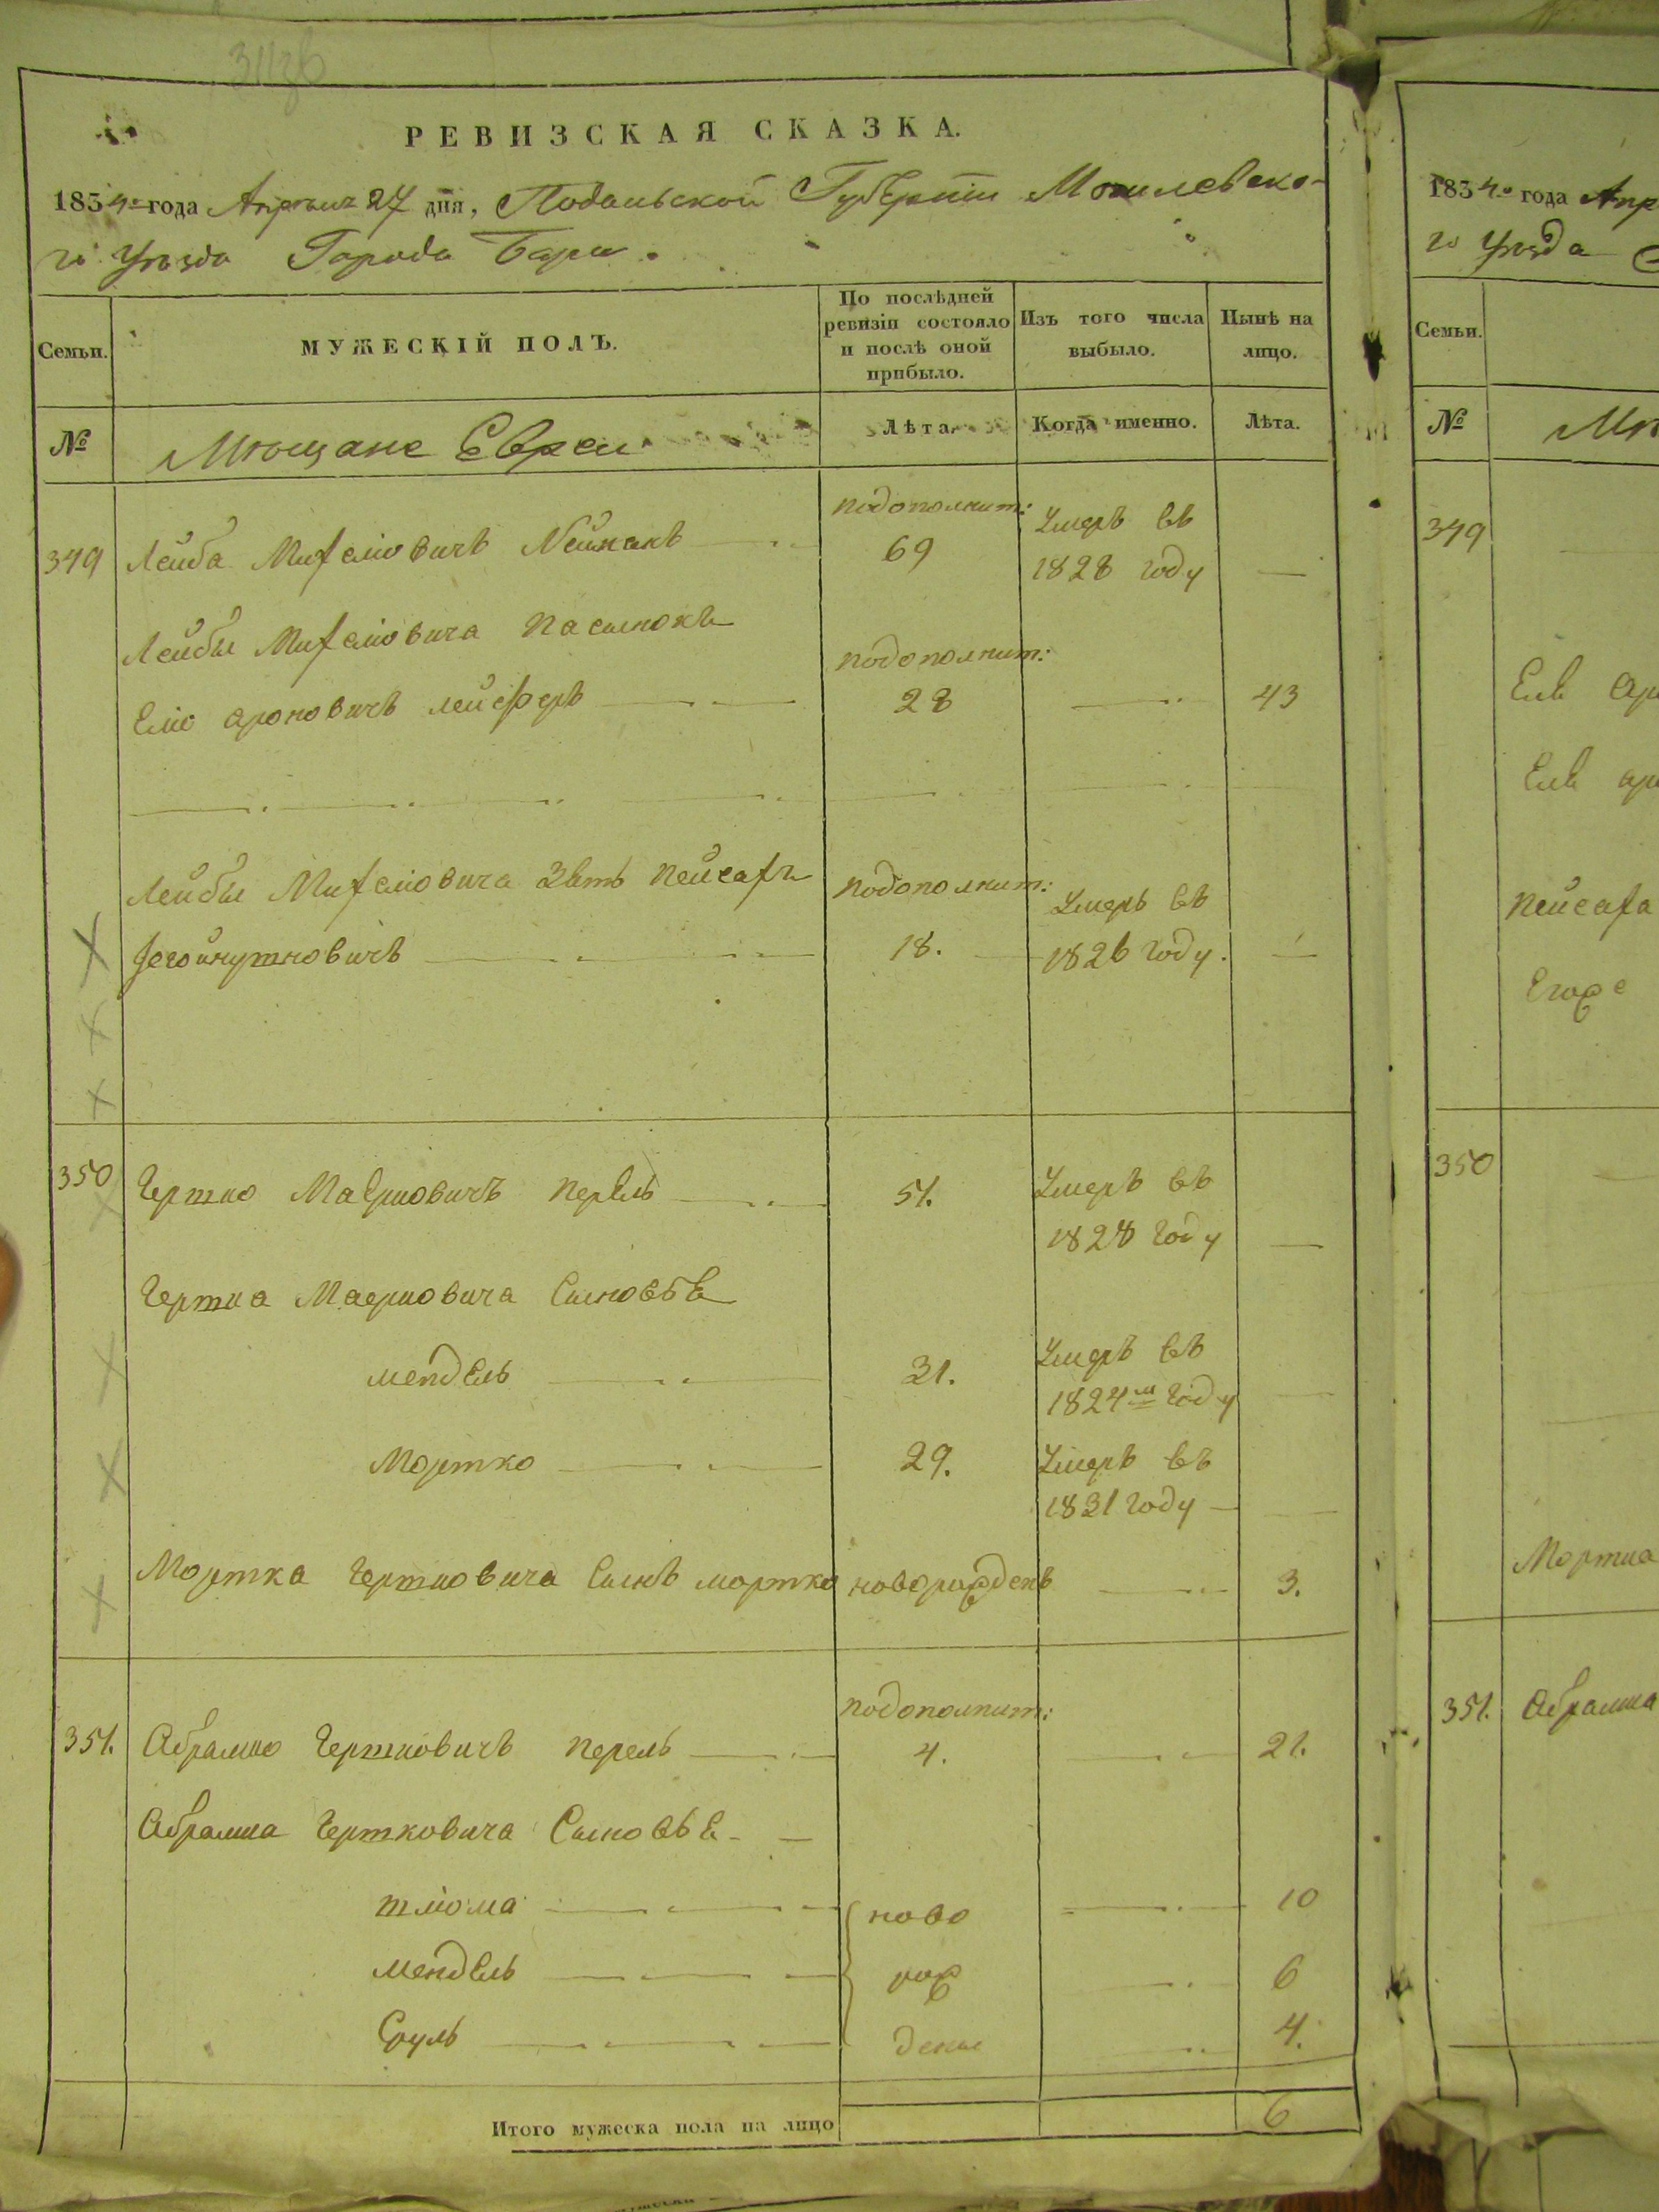 311зв
РЕВИЗСКАЯ СКАЗКА.
1834го года Апреля 27 дня, Подольской Губернiи Могилевско-
го Уезда Города Бара.
Семьи. МУЖЕСКІЙ ПОЛЪ. По послѣдней ревизіи состояло и послѣ оной прибыло. Изъ того числа выбыло. Нынѣ на лицо.
№ Мѣщане Евреи Лѣта. Когда именно. Лѣта.
349 Лейба Михелiовичъ подополнит: 69 Умеръ въ 1828 году —
Лейбы Михелiовича пасынокъ
Елiо Ароновичъ лейферъ подополнит: 28 — 43
Лейбы Михелiовича Зять Пейсахъ подополнит: Умеръ въ
18. 1826 году. —
350 Гершко Маерковичъ перель 51. Умеръ въ 1828 году —
Гершка Маерковича Сыновья
Мендель 31. Умеръ въ 1824м году
Мортко 29. Умеръ въ 1831 году —
Мортка Гершковича Сынъ мортко новорожденъ — 3.
351. Абрамко Гершковичъ перель подополнит: 4. — 21.
Абрамка Гершковича Сыновья —
новорожденные — 10
Мендель 6
Сруль 4.
Итого мужеска пола на лицо 6
1834го года Апр
го Уезда
Семьи.
№ Мѣ
349
Елiо Аро
Елiо аро
Пейсаха
350
Мортка
351. Абрамка